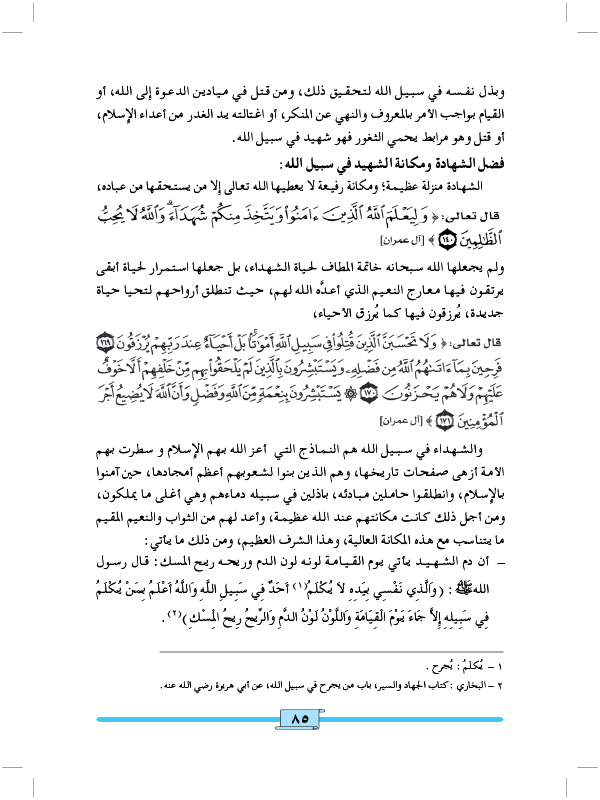 وبذل نفسه في سبيل الله لتحقيق ذلك، ومن قتل في ميادين الدعوة إلى الله، أو
القيام بواجب الأمر بالمعروف والنهي عن المنكر، أو اغتالته يد الغدر من أعداء الإسلام،
أو قتل وهو مرابط يحمي الثغور فهو شهيد في سبيل الله.
فضل الشهادة ومكانة الشهيد في سبيل الله:
الشهادة منزلة عظيمة؛ ومكانة رفيعة لا يعطيها الله تعالى إلا من يستحقها من عباده،
قال تعالى: ﴿ وَلِيَعْلَمَ ٱللَّهُ ٱلَّذِينَ ءَامَنُوا۟ وَيَتَّخِذَ مِنكُمْ شُهَدَآءَ ۗ وَٱللَّهُ لَا يُحِبُّ
ٱلظَّٰلِمِينَ ١٤٠ ﴾ [آل عمران]
ولم يجعلها الله سبحانه خاتمة المطاف لحياة الشهداء، بل جعلها استمرار لحياة أبقى
يرتقون فيها معارج النعيم الذي أعدَّه الله لهم، حيث تنطلق أرواحهم لتحيا حياة
جديدة، يُرزقون فيها كما يُرزق الأحياء،
قال تعالى: ﴿ وَلَا تَحْسَبَنَّ ٱلَّذِينَ قُتِلُوا۟ فِى سَبِيلِ ٱللَّهِ أَمْوَٰتًۢا ۚ بَلْ أَحْيَآءٌ عِندَ رَبِّهِمْ يُرْزَقُونَ ١٦٩
فَرِحِينَ بِمَآ ءَاتَىٰهُمُ ٱللَّهُ مِن فَضْلِهِۦ وَيَسْتَبْشِرُونَ بِٱلَّذِينَ لَمْ يَلْحَقُوا۟ بِهِم مِّنْ خَلْفِهِمْ أَلَّا خَوْفٌ
عَلَيْهِمْ وَلَا هُمْ يَحْزَنُونَ ١٧٠ ۞ يَسْتَبْشِرُونَ بِنِعْمَةٍ مِّنَ ٱللَّهِ وَفَضْلٍ وَأَنَّ ٱللَّهَ لَا يُضِيعُ أَجْرَ
ٱلْمُؤْمِنِينَ ١٧١ ﴾ [آل عمران]
والشهداء في سبيل الله هم النماذج التي أعز الله بهم الإسلام و سطرت بهم
الأمة أزهى صفحات تاريخها، وهم الذين بنوا لشعوبهم أعظم أمجادها، حين آمنوا
بالإسلام، وانطلقوا حاملين مبادئه، باذلين في سبيله دماءهم وهي أغلى ما يملكون،
ومن أجل ذلك كانت مكانتهم عند الله عظيمة، وأعد لهم من الثواب والنعيم المقيم
ما يتناسب مع هذه المكانة العالية، وهذا الشرف العظيم، ومن ذلك ما يأتي:
– أن دم الشهيد يأتي يوم القيامة لونه لون الدم وريحه ريح المسك: قال رسول
الله ﷺ : (وَالَّذِي نَفْسِي بِيَدِهِ لَا يُكْلَمُ(١) أَحَدٌ فِي سَبِيلِ اللَّهِ وَاللَّهُ أَعْلَمُ بِمَنْ يُكْلَمُ
فِي سَبِيلِهِ إِلَّا جَاءَ يَوْمَ الْقِيَامَةِ وَاللَّوْنُ لَوْنُ الدَّمِ وَالرِّيحُ رِيحُ الْمِسْكِ)(٢) .
١ – يُكلمُ : يُجرح .
٢ – البخاري : كتاب الجهاد والسير، باب من يجرح في سبيل الله، عن أبي هريرة رضي الله عنه.
٨٥